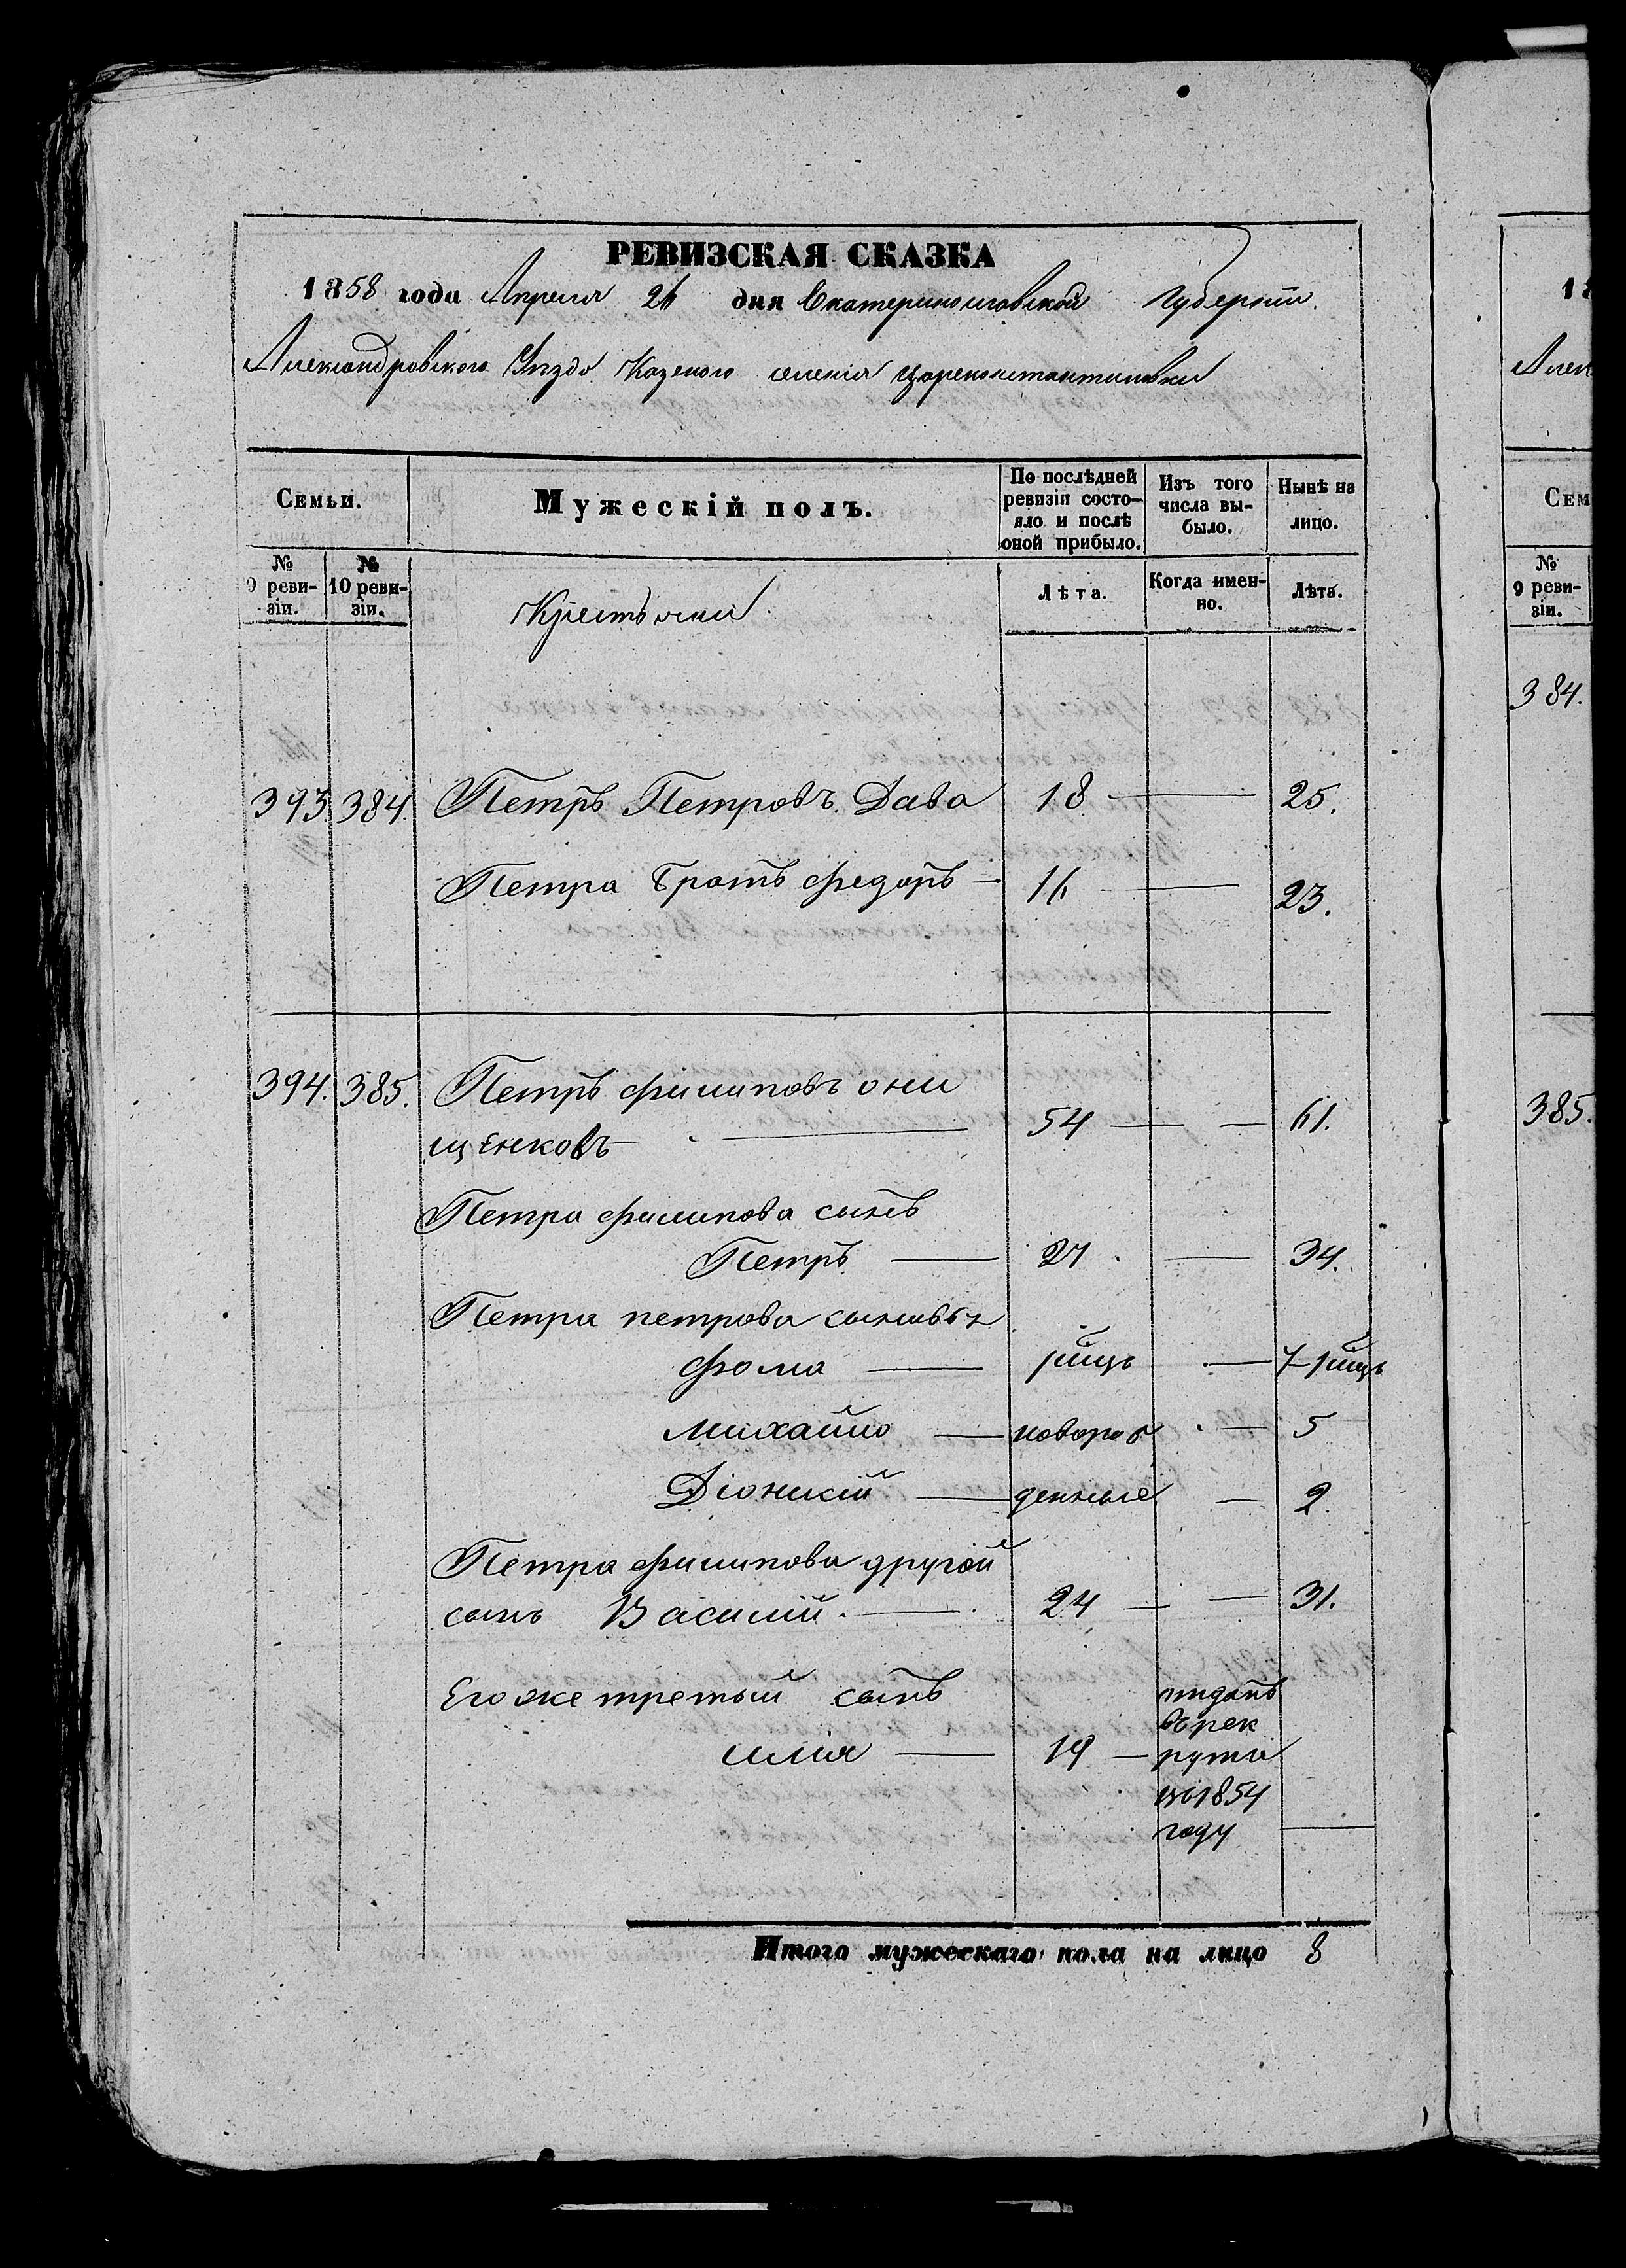 РЕВИЗСКАЯ СКАЗКА
1858 года Апреля 26 дня Екатеринославской Губернии.
Александровского Уезда Казеного селенія Цареконстантиновки
Семьи. Мужескій полъ. По послѣдней ревизіи состо-яло и послѣ оной прибыло. Изъ того числа вы-было. Нынѣ на лицо.
№ 9 реви-зіи. № 10 реви-зіи. Крестьяни Лѣта. Когда имен-но. Лѣта.
393. 384. Петръ Петровъ Дава 18 — 25.
Петра братъ Федоръ — 16 — 23.
394. 385. Петръ Филиповъ они
щенковъ — 54 — — 61.
Петра Филипова сынъ
Петръ — 27 — 34.
Петра петрова сыновья
Фома — 1мцъ — 7-1мцъ
Михайло — новорож — 5
Діонисій — денные — 2.
Петра Филипова другой
сынъ Василій. — 24 — — 31.
Его же третьій сынъ отданъ
въ рек
илія — 19 — руты
въ 1854
году —
Итого мужескаго пола на лицо 8
18
Алек
Сем
№ 9 реви-зіи.
384.
385.